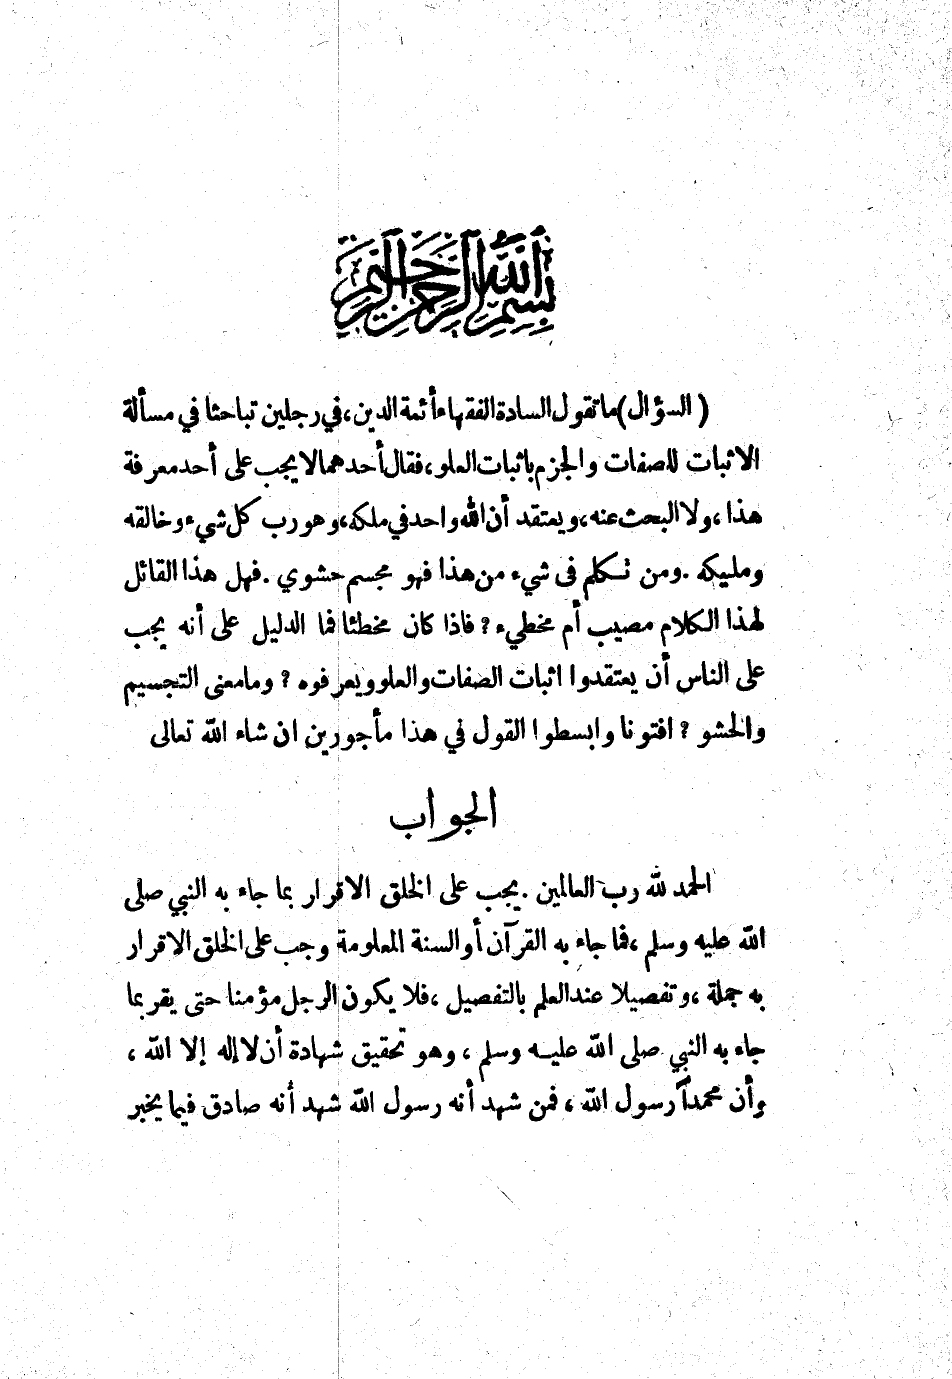 بسم الله الرحمن الرحيم
( السؤال ) ما تقول السادة الفقهاء أئمة الدين ، في رجلين تباحثا في مسألة
الاثبات للصفات والجزم باثبات العلو ، فقال أحدهما لا يجب على أحد معرفة
هذا ، ولا البحث عنه ، ويعتقد أن الله واحد في ملكه ، وهو رب كل شيء وخالقه
ومليكه . ومن تكلم فى شيء من هذا فهو مجسم حشوي . فهل هذا القائل
لهذا الكلام مصيب أم مخطيء ؟ فاذا كان مخطئا فما الدليل على أنه يجب
على الناس أن يعتقدوا اثبات الصفات والعلو ويعرفوه ؟ وما معنى التجسيم
والحشو ؟ افتونا وابسطوا القول في هذا مأجورين ان شاء الله تعالى
الجواب
الحمد لله رب العالمين . يجب على الخلق الاقرار بما جاء به النبي صلى
الله عليه وسلم ، فما جاء به القرآن أو السنة المعلومة وجب على الخلق الاقرار
به جملة ، وتفصيلا عند العلم بالتفصيل ، فلا يكون الرجل مؤمنا حتى يقر بما
جاء به النبي صلى الله عليه وسلم ، وهو تحقيق شهادة أن لا إله إلا الله ،
وأن محمداً رسول الله ، فمن شهد أنه رسول الله شهد أنه صادق فيما يخبر